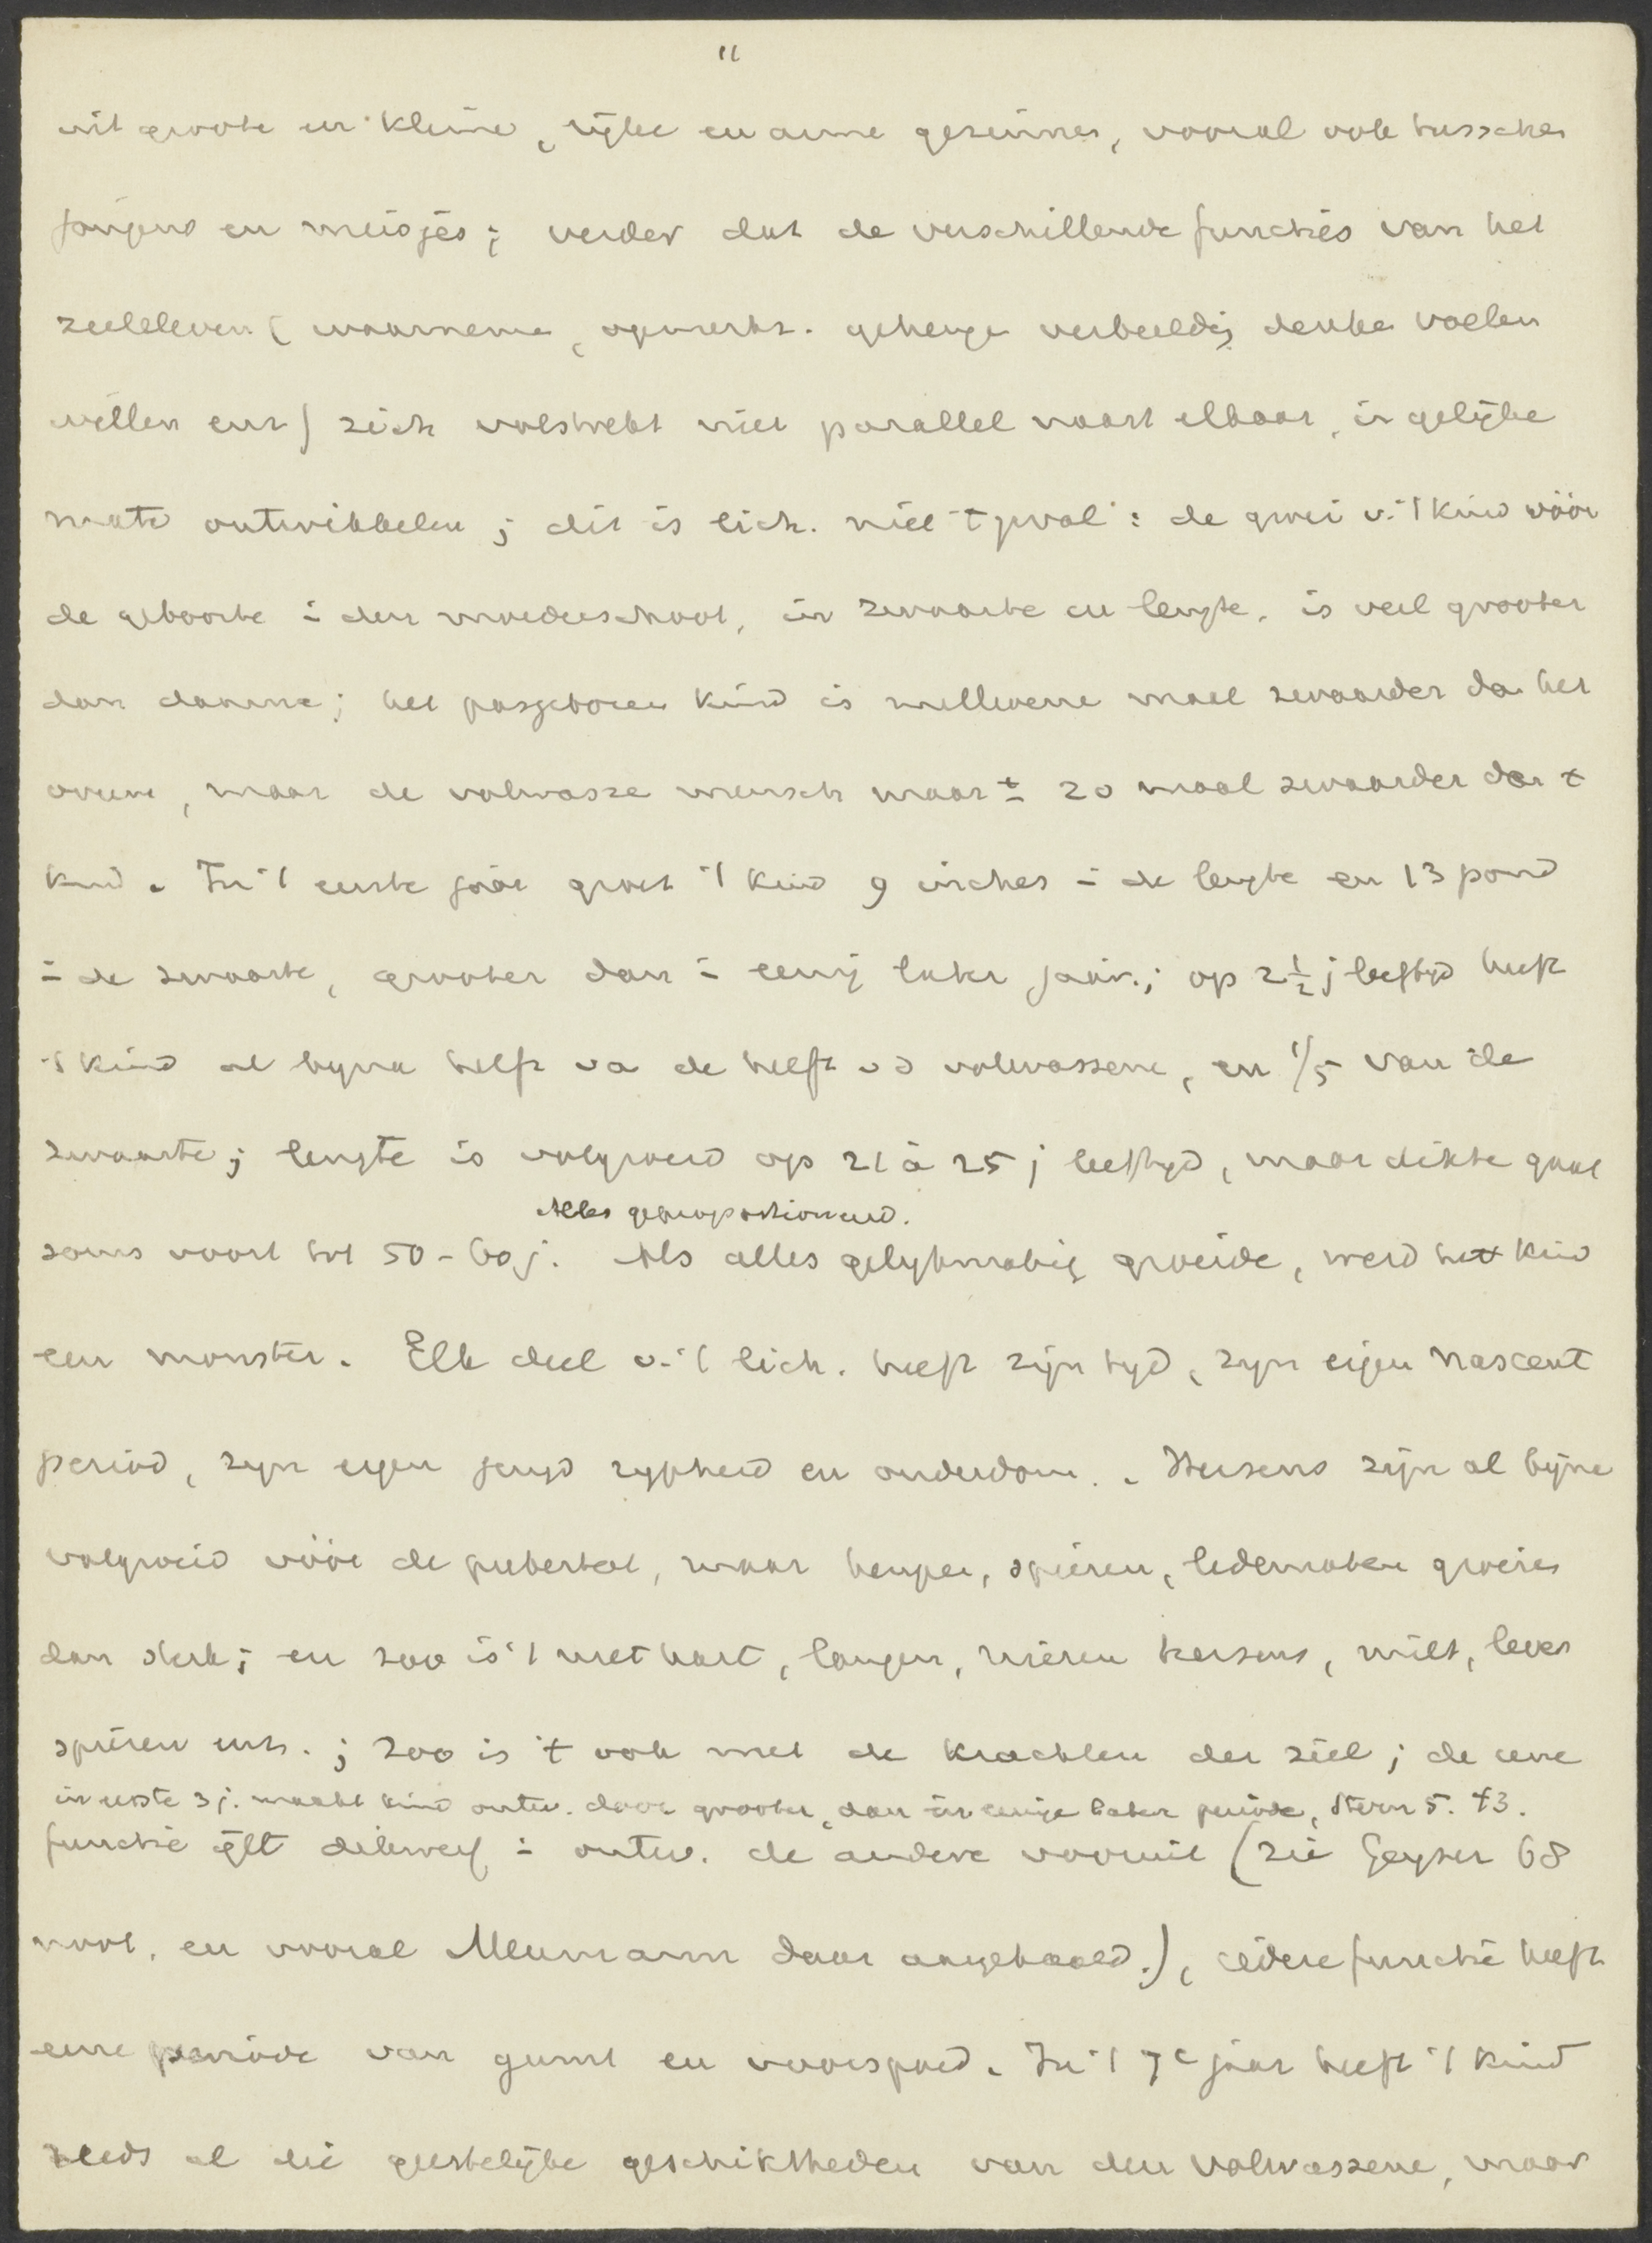 11
uit groote en kleine, rijke en arme gezinnen, vooral ook tusschen
jongens en meisjes; verder dat de verschillende functies van het
zieleleven (waarneme, opmerkz. geheuge verbeeldg denke voelen
willen enz) zich volstrekt niet parallel naast elkaar, in gelijke
mate ontwikkelen; dit is lich. niet 't geval: de groei v. 't kind vóór
de geboorte i den moederschoot, in zwaarte en lengte, is veel grooter
dan daarna; het pasgeboren kind is millioene maal zwaarder da het
ovum, maar de volwasse mensch maar ± 20 maal zwaarder dan t
kind. In 't eerste jaar groeit 't kind 9 inches i de lengte en 13 pond
i de zwaarte, grooter dan i eenig later jaar; op 2½ j leeftijd heeft
't kind al byna helft va de helft vd volwassene, en 1/5 van de
zwaarte; lengte is volgroeid op 21 à 25 j leeftyd, maar dikte gaat
Alles geproportioneerd.
soms voort tot 50-60 j. Als alles gelykmatig groeide, werd het kind
een monster. Elk deel v. 't lich. heeft zijn tyd, zyn eigen nascent
period, zyn eigen jeugd rypheid en ouderdom. Hersens zijn al bijna
volgroeid vóór de puberteit, maar heupen, spieren, ledematen groeien
dan sterk; en zoo is 't met hart, longen, nieren hersens, milt, lever
spieren enz.; zoo is 't ook met de krachten der ziel; de eene
in eerste 3 j. maakt kind ontw. door grooter, dan in eenige later periode, Stern S. 43.
functie ijlt dikwerf i ontw. de andere vooruit (zie Geyser 68
noot, en vooral Meumann daar aangehaald.), iedere functie heeft
eene periode van gunst en voorspoed. In 't 7e jaar heeft 't kind
reeds al die geestelijke geschiktheden van den volwassene, maar